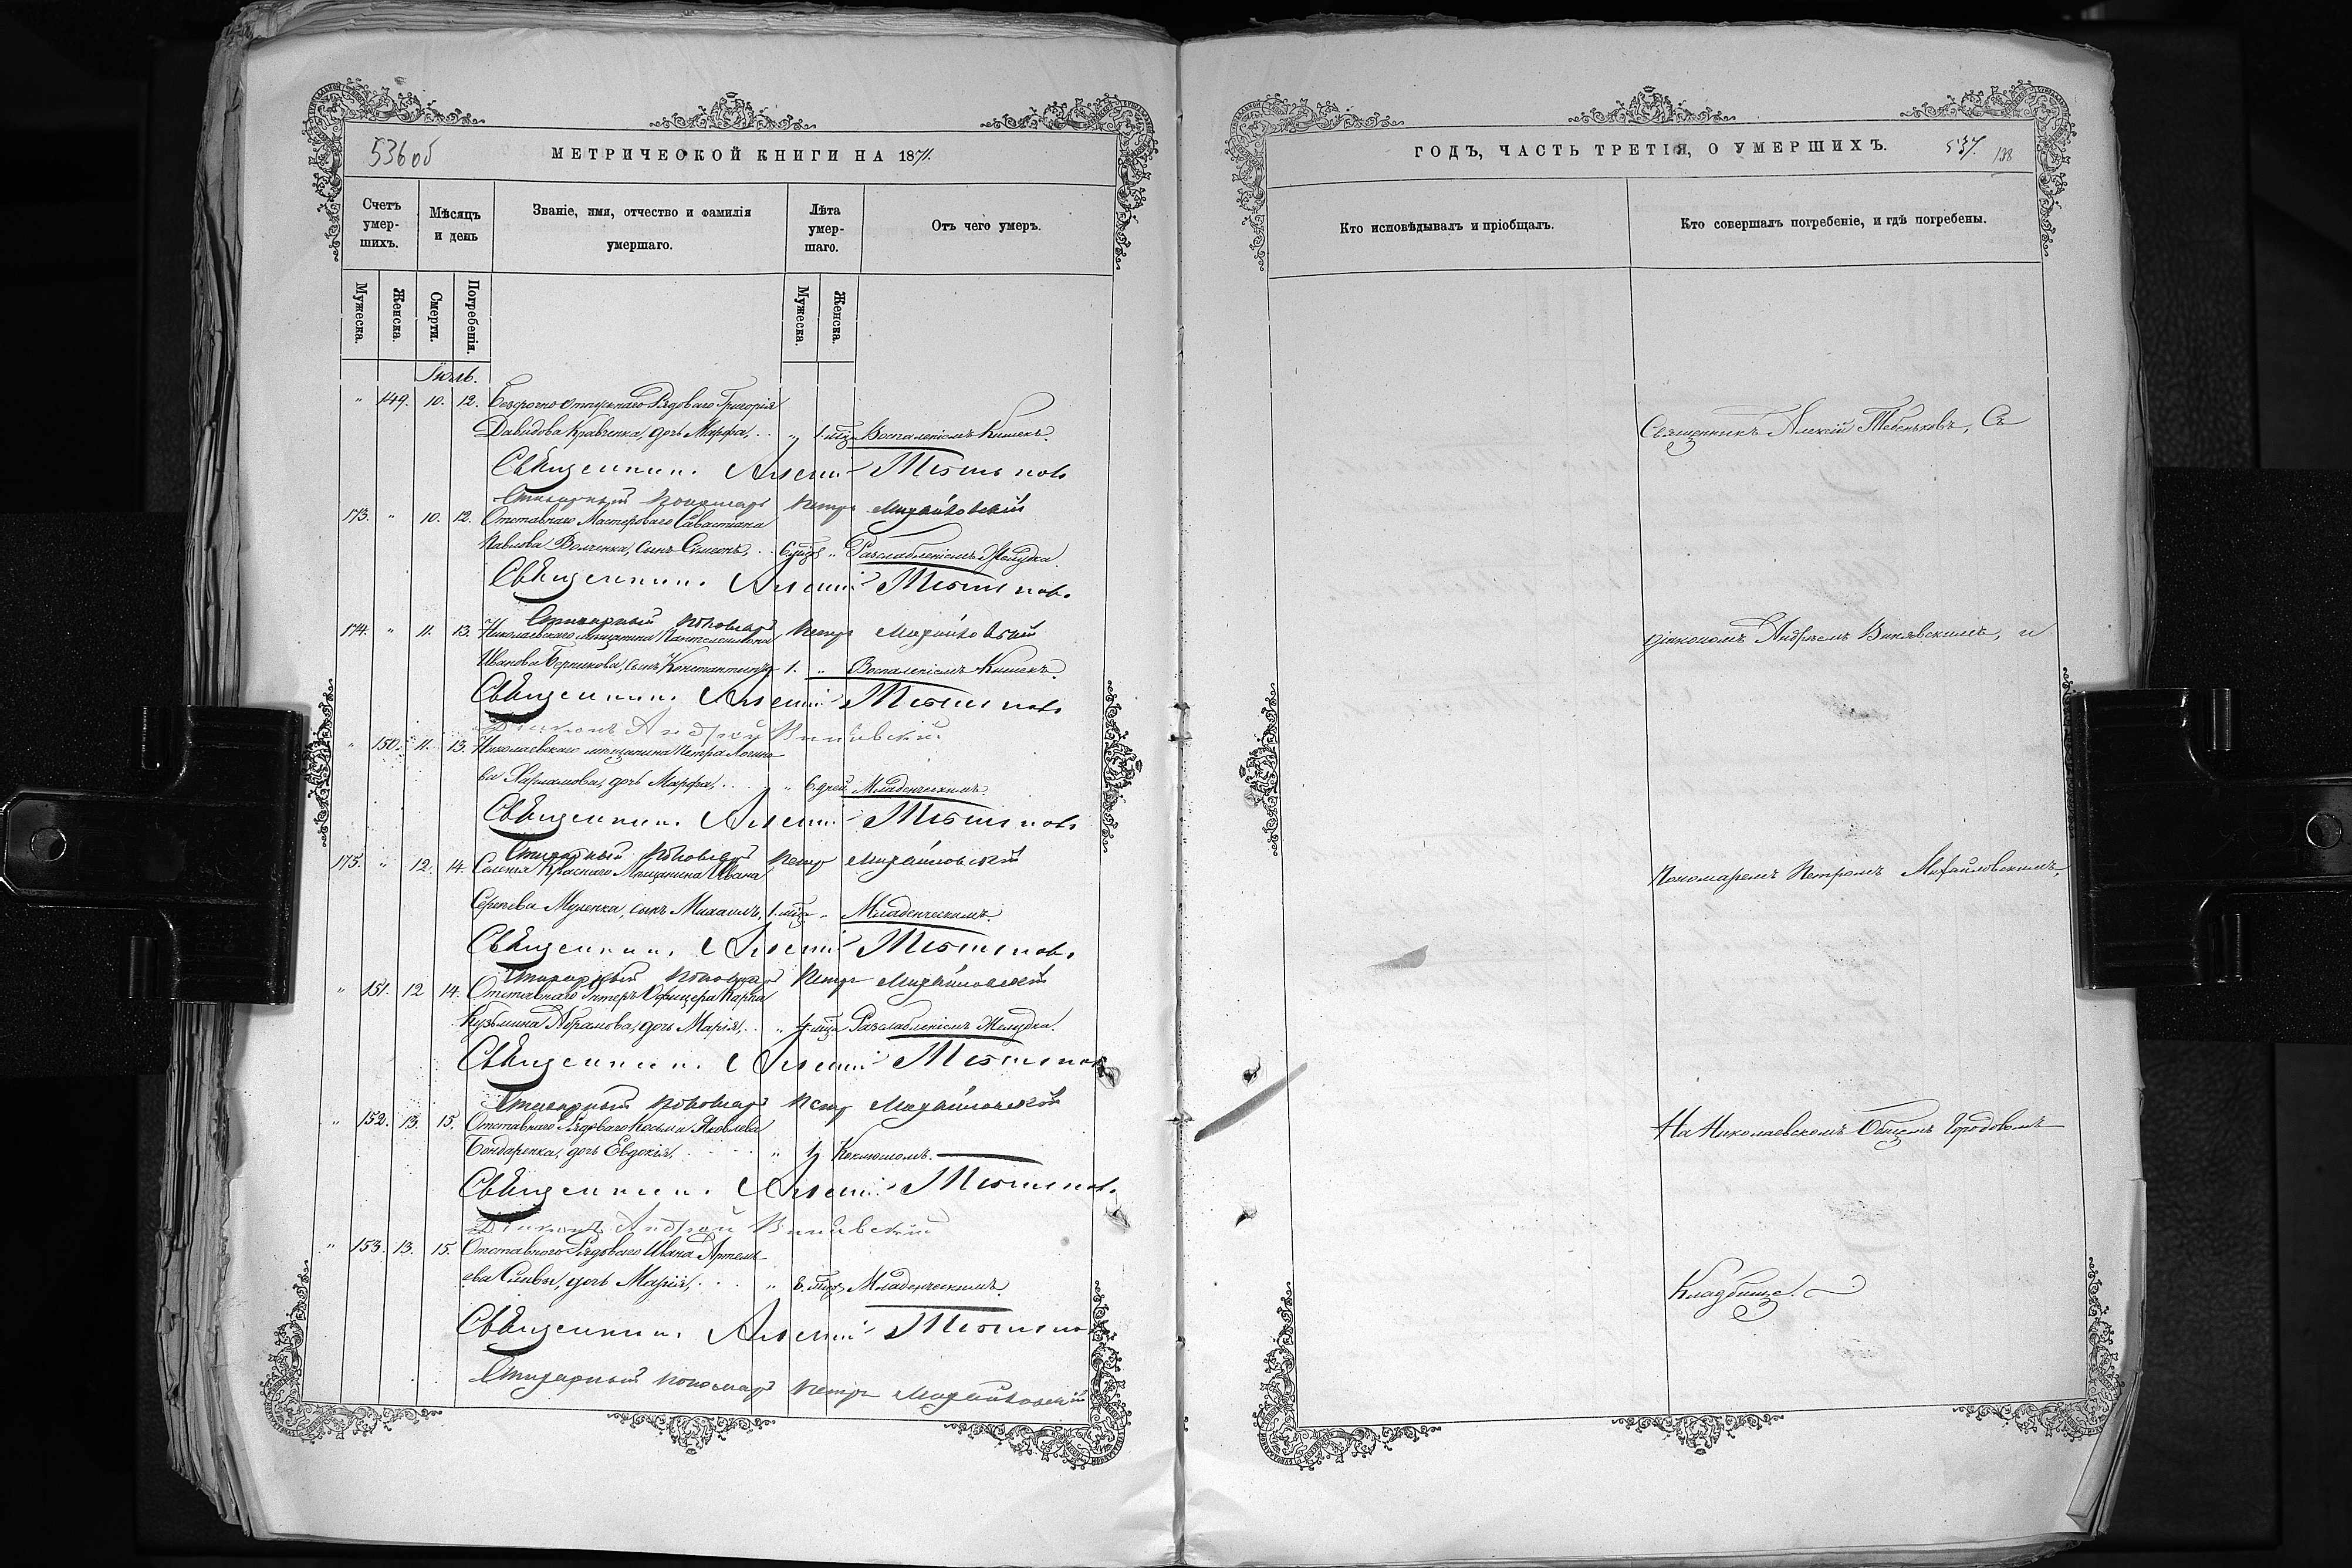 536 об
МЕТРИЧЕСКОЙ КНИГИ НА 1871.
Счетъ умер-шихъ.
Мѣсяцъ и день
Званіе, имя, отчество и фамилія умершаго.
Лѣта умер-шаго.
Отъ чего умеръ.
Мужеска.
Женска.
Смерти.
Погребенія.
Мужеска.
Женска.
Іюль.
" 149. 10. 12. Безсрочно отпускнаго Рядоваго Григорія
Давидова Кравченка, дочь Марфа, " 1. мѣс. Воспаленіемъ Кишекъ.
Священникъ Алексій
Стихарный Пономарь Петръ Михайловскій
173. " 10. 12. Отставнаго Мастероваго Савастіана
Павлова Волченка, сынъ Сімеонъ, 6. мѣс. " Разслабленіемъ Желудка.
Священникъ Алексій
Стихарный Пономарь Петръ Михайловскій
174. " 11. 13. Николаевскаго мѣщанина Пантелеимона
Иванова Берникова, сынъ Константинъ 1. " Воспаленіемъ Кишекъ.
Священникъ Алексій
Діаконъ Андрей
" 150. 11. 13. Николаевскаго мѣщанина Петра Логино
ва Харламова, дочь Марфа, " 6. дней Младенческимъ.
Священникъ Алексій
Стихарный Пономарь Петръ Михайловскій
175. " 12. 14. Селенія Краснаго Мѣщанина Ивана
Сергѣева Мусенка, сынъ Михаилъ, 1. мѣс. " Младенческимъ.
Священникъ Алексій
Стихарный Пономарь Петръ Михайловскій
" 151. 12 14. Отставнаго Унтеръ Офицера Карпа
Кузьмина Абрамова, дочь Марія, " 4. мѣс. Разслабленіемъ Желудка.
Священникъ Алексій
Стихарный Пономарь Петръ Михайловскій
" 152. 13. 15. Отставнаго Рядоваго Косьмы Яковлева
Бондаренка, дочь Евдокія, " Коклюшемъ.
Священникъ Алексій
Діаконъ Андрей
" 153. 13. 15. Отставного Рядоваго Ивана Артемь
ева Сливы, дочь Марія, " 8. мѣс. Младенческимъ.
Священникъ Алексій
Стихарный Пономарь Петръ Михайловскій
ГОДЪ, ЧАСТЬ ТРЕТІЯ, О УМЕРШИХЪ.
537. 138
Кто исповѣдывалъ и пріобщалъ.
Кто совершалъ погребеніе, и гдѣ погребены.
Священникъ Алексій Тебеньковъ, Съ
діакономъ Андреемъ и
Пономаремъ Петромъ Михайловскимъ,
На Николаевскомъ Общемъ Городовомъ
Кладбищѣ.